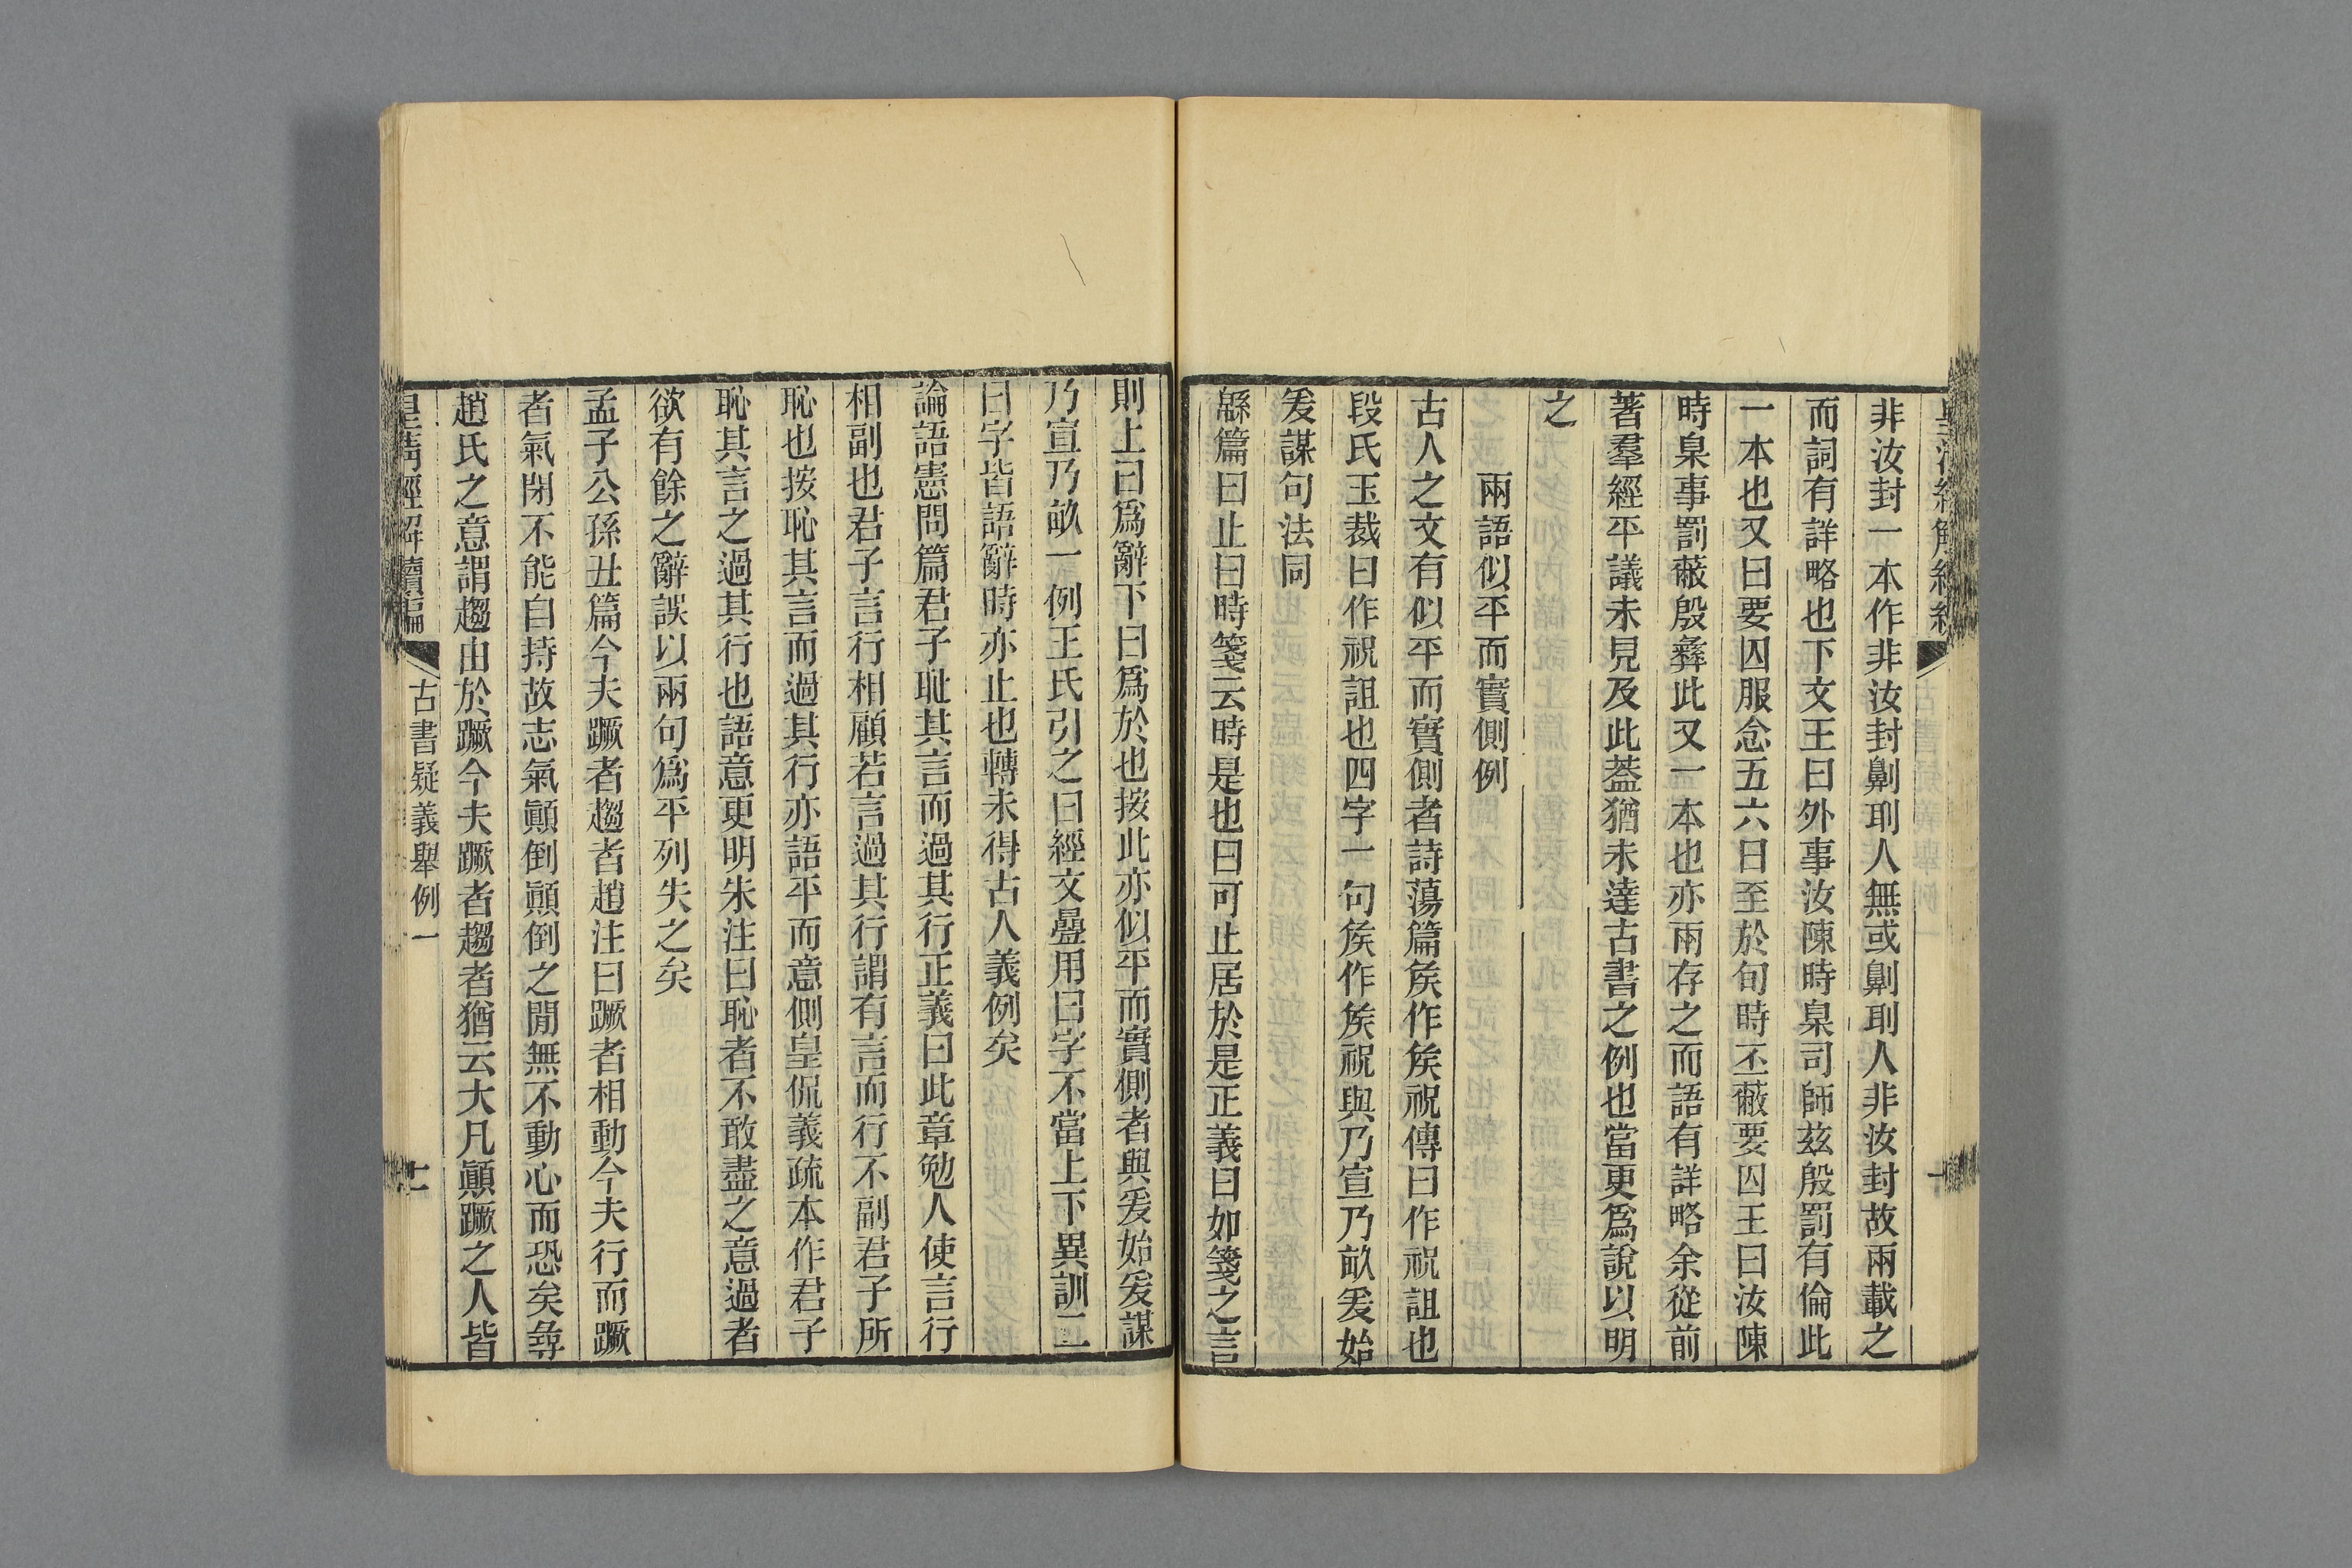 非汝封一本作非汝封劓刵人無或劓刵人非汝封故兩載之
而詞有詳略也下文王曰外事汝陳時臬司師茲殷罰有倫此
一本也又曰要囚服念五六日至於旬時丕蔽要囚王曰汝陳
時臬事罰蔽殷彝此又一本也亦兩存之而語有詳略余從前
著羣經平議未見及此葢猶未達古書之例也當更爲說以明
之
兩語似平而實側例
古人之文有似平而實側者詩蕩篇矦作矦祝傳曰作祝詛也
段氏玉裁曰作祝詛也四字一句矦作矦祝與乃宣乃畝爰始
爰謀句法同
緜篇曰止曰時箋云時是也曰可止居於是正義曰如箋之言
則上曰爲辭下曰爲於也按此亦似平而實側者與爰始爰謀
乃宣乃畝一例王氏引之曰經文疊用曰字不當上下異訓二
曰字皆語辭時亦止也轉未得古人義例矣
論語憲問篇君子恥其言而過其行正義曰此章勉人使言行
相副也君子言行相顧若言過其行謂有言而行不副君子所
恥也按恥其言而過其行亦語平而意側皇侃義疏本作君子
恥其言之過其行也語意更明朱注曰恥者不敢盡之意過者
欲有餘之辭誤以兩句爲平列失之矣
孟子公孫丑篇今夫蹶者趨者趙注曰蹶者相動今夫行而蹶
者氣閉不能自持故志氣顚倒顚倒之閒無不動心而恐矣尋
趙氏之意謂趨由於蹶今夫蹶者趨者猶云大凡顚蹶之人皆
皇清經解續編
古書疑義舉例一